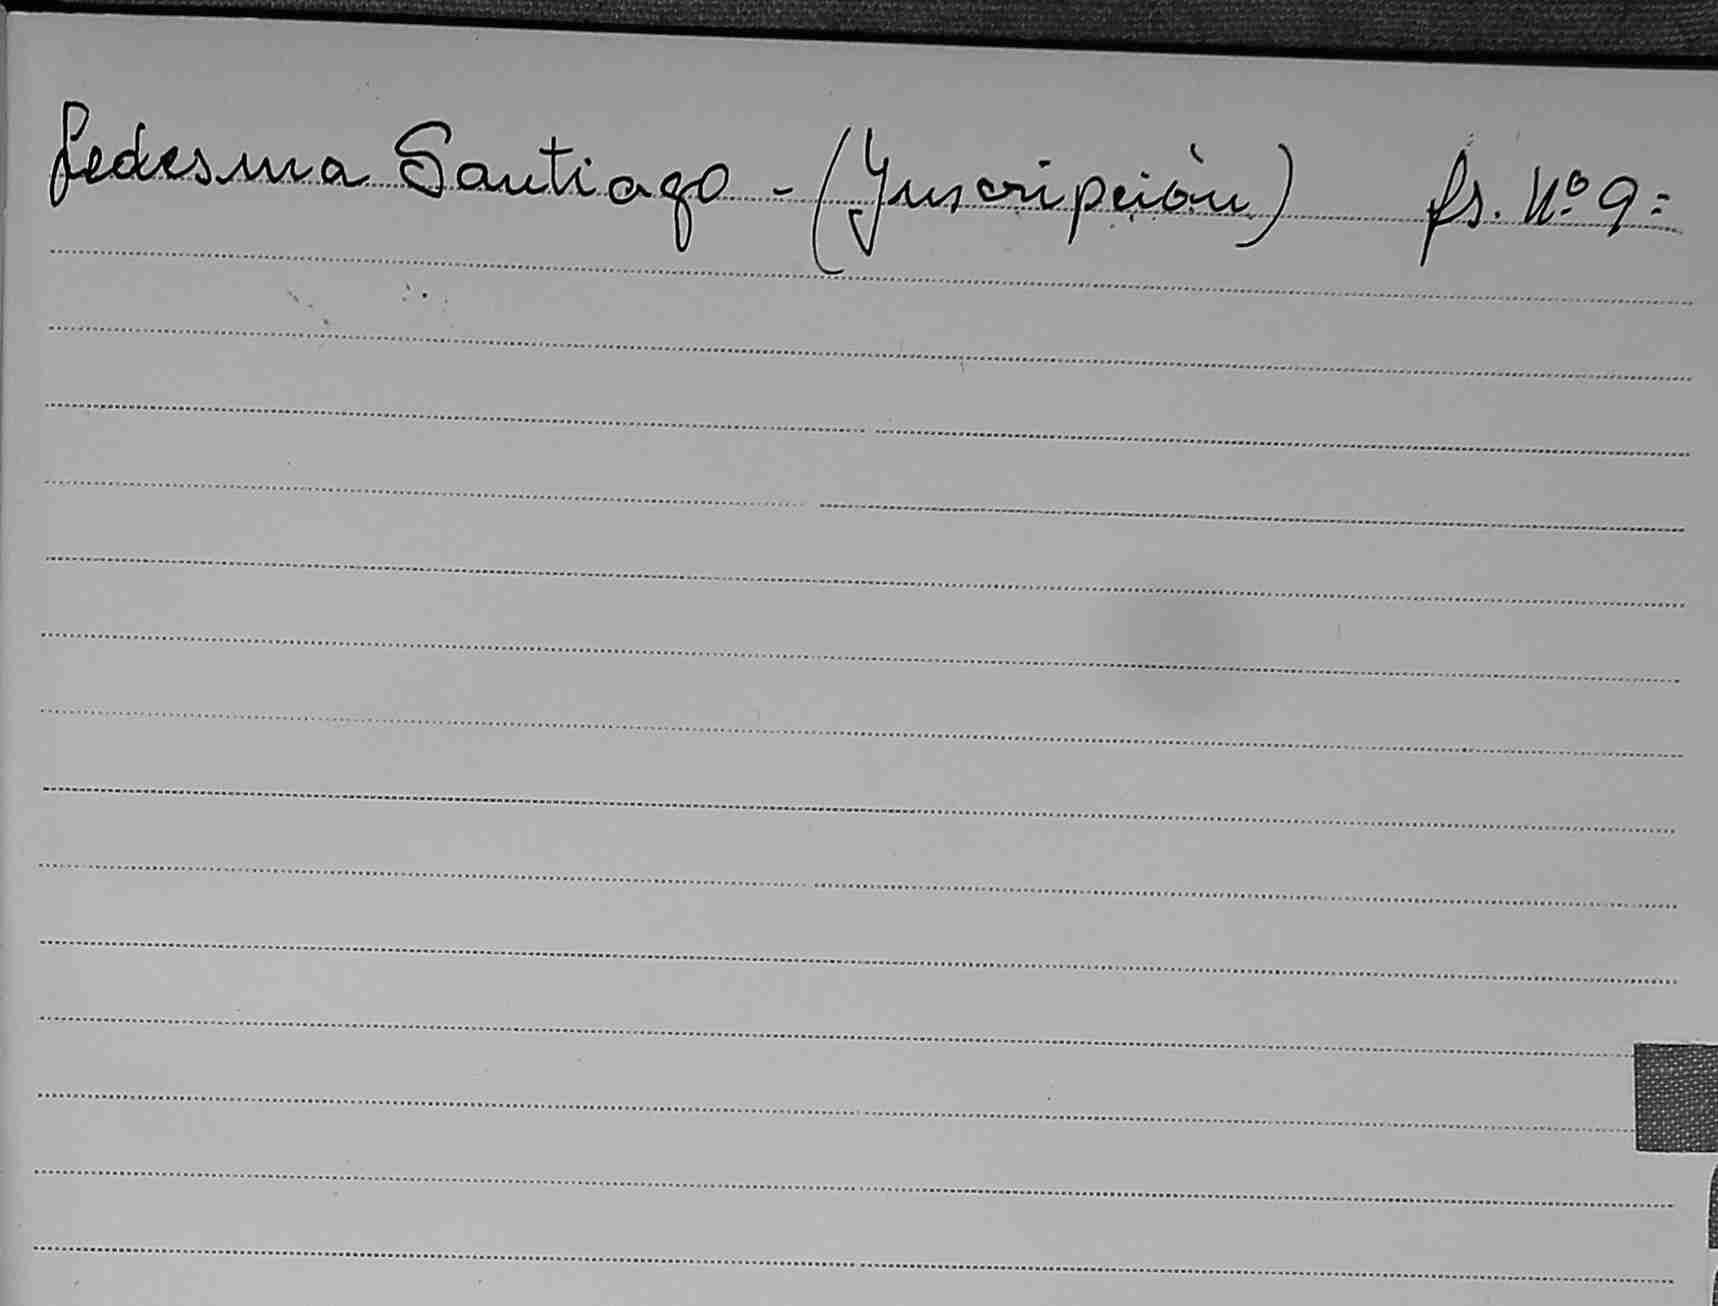 Ledesma Santiago - (Inscripción) fs. Nº 9=